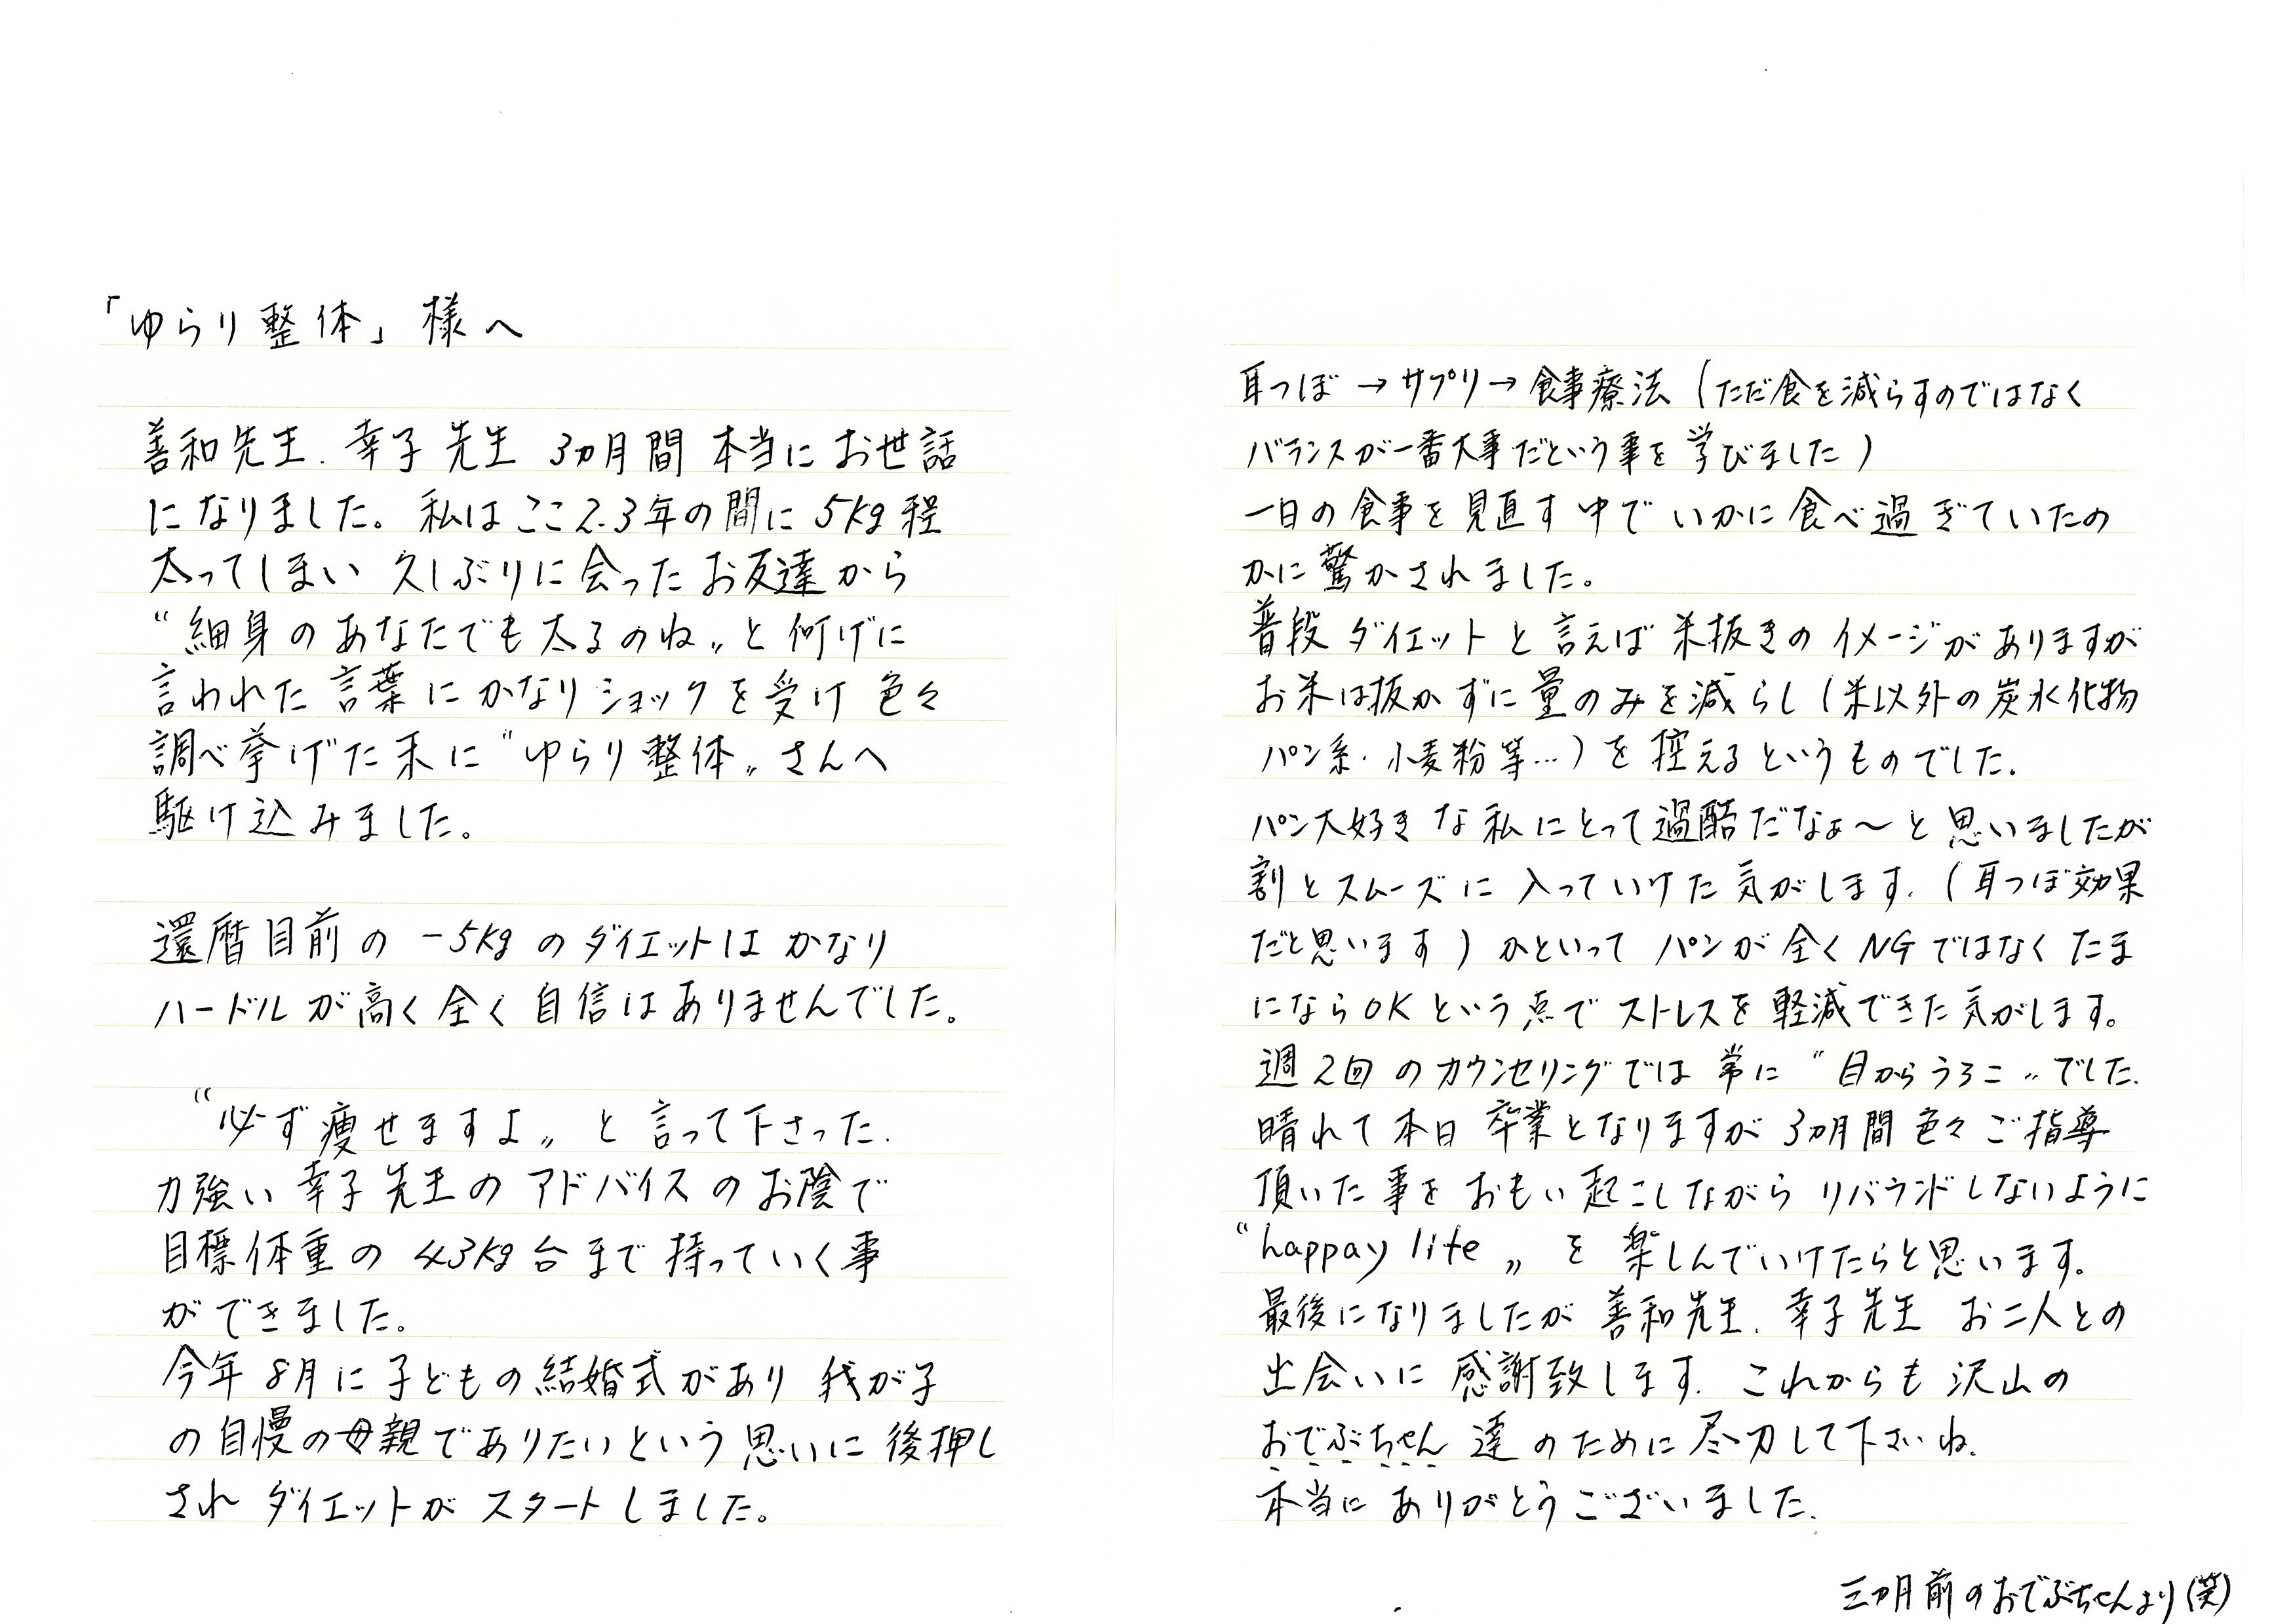 「ゆらり整体」様へ
善和先生.幸子先生 3ヵ月間 本当にお世話
になりました。私はここ2.3年の間に5kg程
太ってしまい 久しぶりに会ったお友達から
“細身のあなたでも太るのね〟と何げに
言われた言葉にかなりショックを受け 色々
調べ挙げた末に“ゆらり整体〟さんへ
駆け込みました。
還暦目前の -5kgのダイエットは かなり
ハードルが高く全く自信はありませんでした。
“必ず痩せますよ〟と言って下さった.
力強い 幸子先生のアドバイスのお陰で
目標体重の 43kg台まで持っていく事
ができました。
今年8月に子どもの結婚式があり 我が子
の自慢の母親でありたいという思いに後押し
され ダイエットが スタートしました。
耳つぼ→サプリ→食事療法(ただ食を減らすのではなく
バランスが一番大事だという事を学びました)
一日の食事を見直す中で いかに食べ過ぎていたの
かに驚かされました。
普段ダイエットと言えば米抜きのイメージがありますが
お米は抜かずに量のみを減らし(米以外の炭水化物
パン系.小麦粉等…)を控えるというものでした.
パン大好きな私にとって過酷だなぁ〜と思いましたが
割とスムーズに入っていけた気がします.(耳つぼ効果
だと思います)かといって パンが全くNGではなくたま
にならOKという点でストレスを軽減できた気がします。
週2回のカウンセリングでは 常に“目からうろこ〟でした.
晴れて本日 卒業となりますが 3ヵ月間色々ご指導
頂いた事をおもい起こしながら リバウンドしないように
“happay life〟を 楽しんでいけたらと思います。
最後になりましたが 善和先生.幸子先生 お二人との
出会いに感謝致します. これからも沢山の
おでぶちゃん達のために尽力して下さいね.
本当に ありがとうございました.
三ヵ月前のおでぶちゃんより(笑)